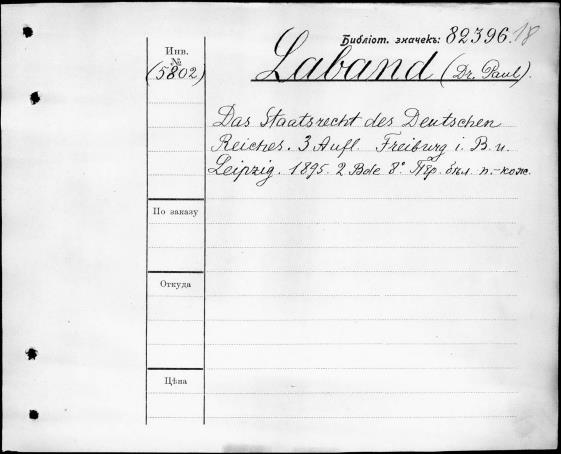 Библіот. значекъ: 82396.18
Инв.
№
(5802)
Laband (Dr. Paul).
Das Staatsrecht des Deutschen
Reiches. 3 Aufl. Freiburg i. B. u.
Leipzig. 1895. 2 Bde 8° бкл. п.-кож.
По заказу
Откуда
Цѣна